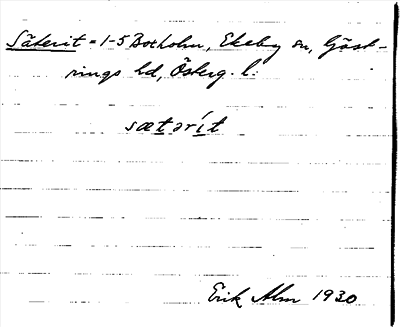 Säterit = 1-5 Botholm, Ekeby sn, Göst-
rings hd, Österg. l.
sætərít
Erik Alm 1930